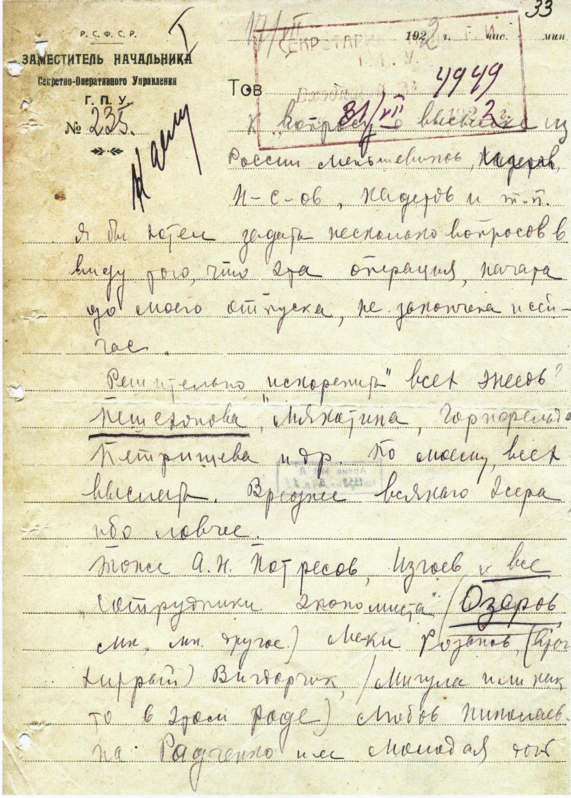 33
Р.С.Ф.С.Р.
17/VII 1922 г. час. мин.
ЗАМЕСТИТЕЛЬ НАЧАЛЬНИКА
Секретно-Оперативного Управления
Г.П.У.
№ 235.
СЕКРЕТАРИАТ
Г.П.У.
4949
31/VII 1922 г.
Тов
К вопросу о высылке из
России меньшевиков, кадетов,
н-с-ов, кадетов и т.п.
Я бы хотел задать несколько вопросов в
виду того, что эта операция, начатая
до моего отпуска, не закончена и сей-
час.
Решительно „искоренить" всех энесов?
Пешехонова, Мякотина, Горнфельда
Петрищева и др. По моему, всех
выслать. Вреднее всякаго эсера,
ибо ловчее.
Тоже А.Н. Потресов, Изгоев и все
„сотрудники Экономиста" (Озеров
мн., мн. другие.) Меки Розанов, (врач
хитрый) Вигдорчик, (Мигула или как
то в этом роде) Любовь Николаев-
на Радченко и ее молодая дочь